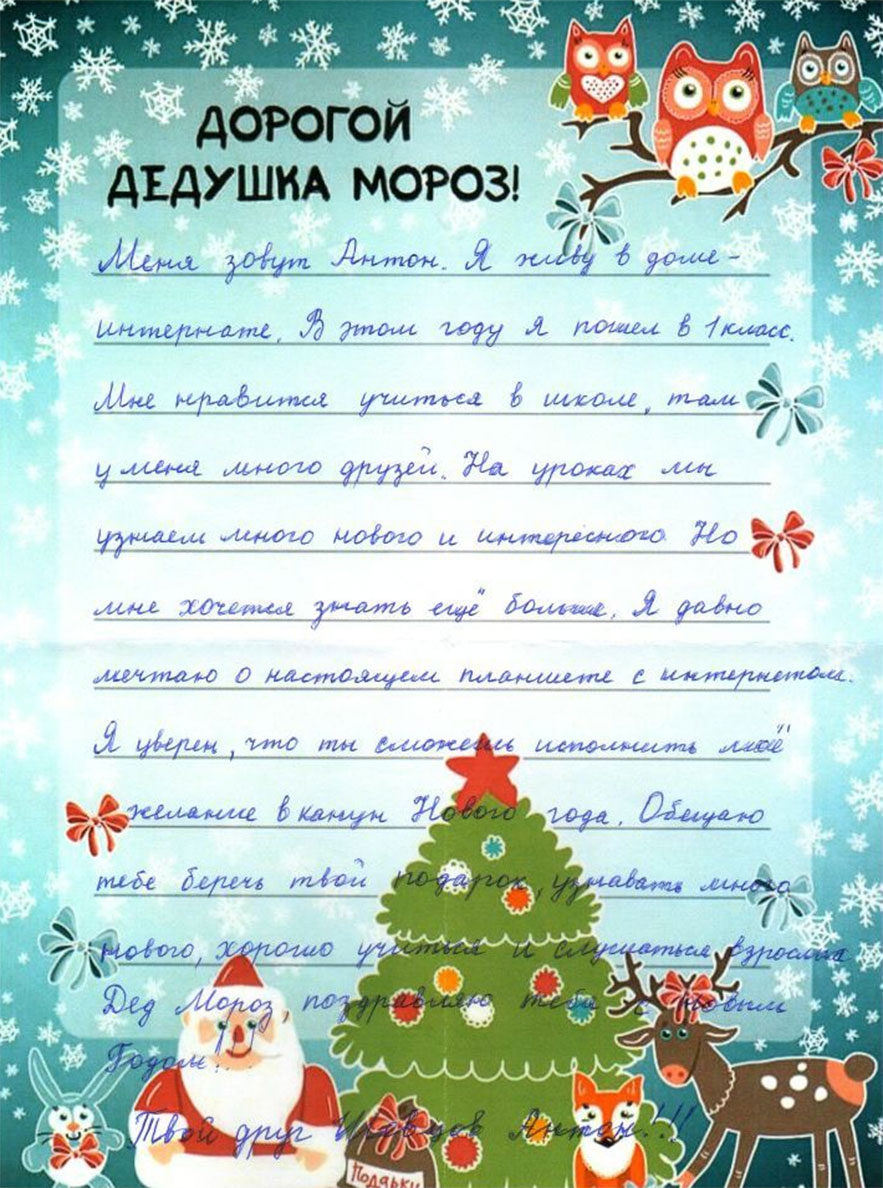 ДОРОГОЙ
ДЕДУШКА МОРОЗ!
Меня зовут Антон. Я живу в доме-
интернате. В этом году я пошел в 1 класс.
Мне нравится учиться в школе, там
у меня много друзей. На уроках мы
узнаем много нового и интересного. Но
мне хочется знать ещё больше. Я давно
мечтаю о настоящем планшете с интернетом.
Я уверен, что ты сможешь исполнить моё
желание в канун Нового года. Обещаю
тебе беречь твой подарок, узнавать много
нового, хорошо учиться и слушаться взрослых
Дед Мороз, поздравляю тебя с новым
Годом!
Твой друг Антон!!!
Подарки